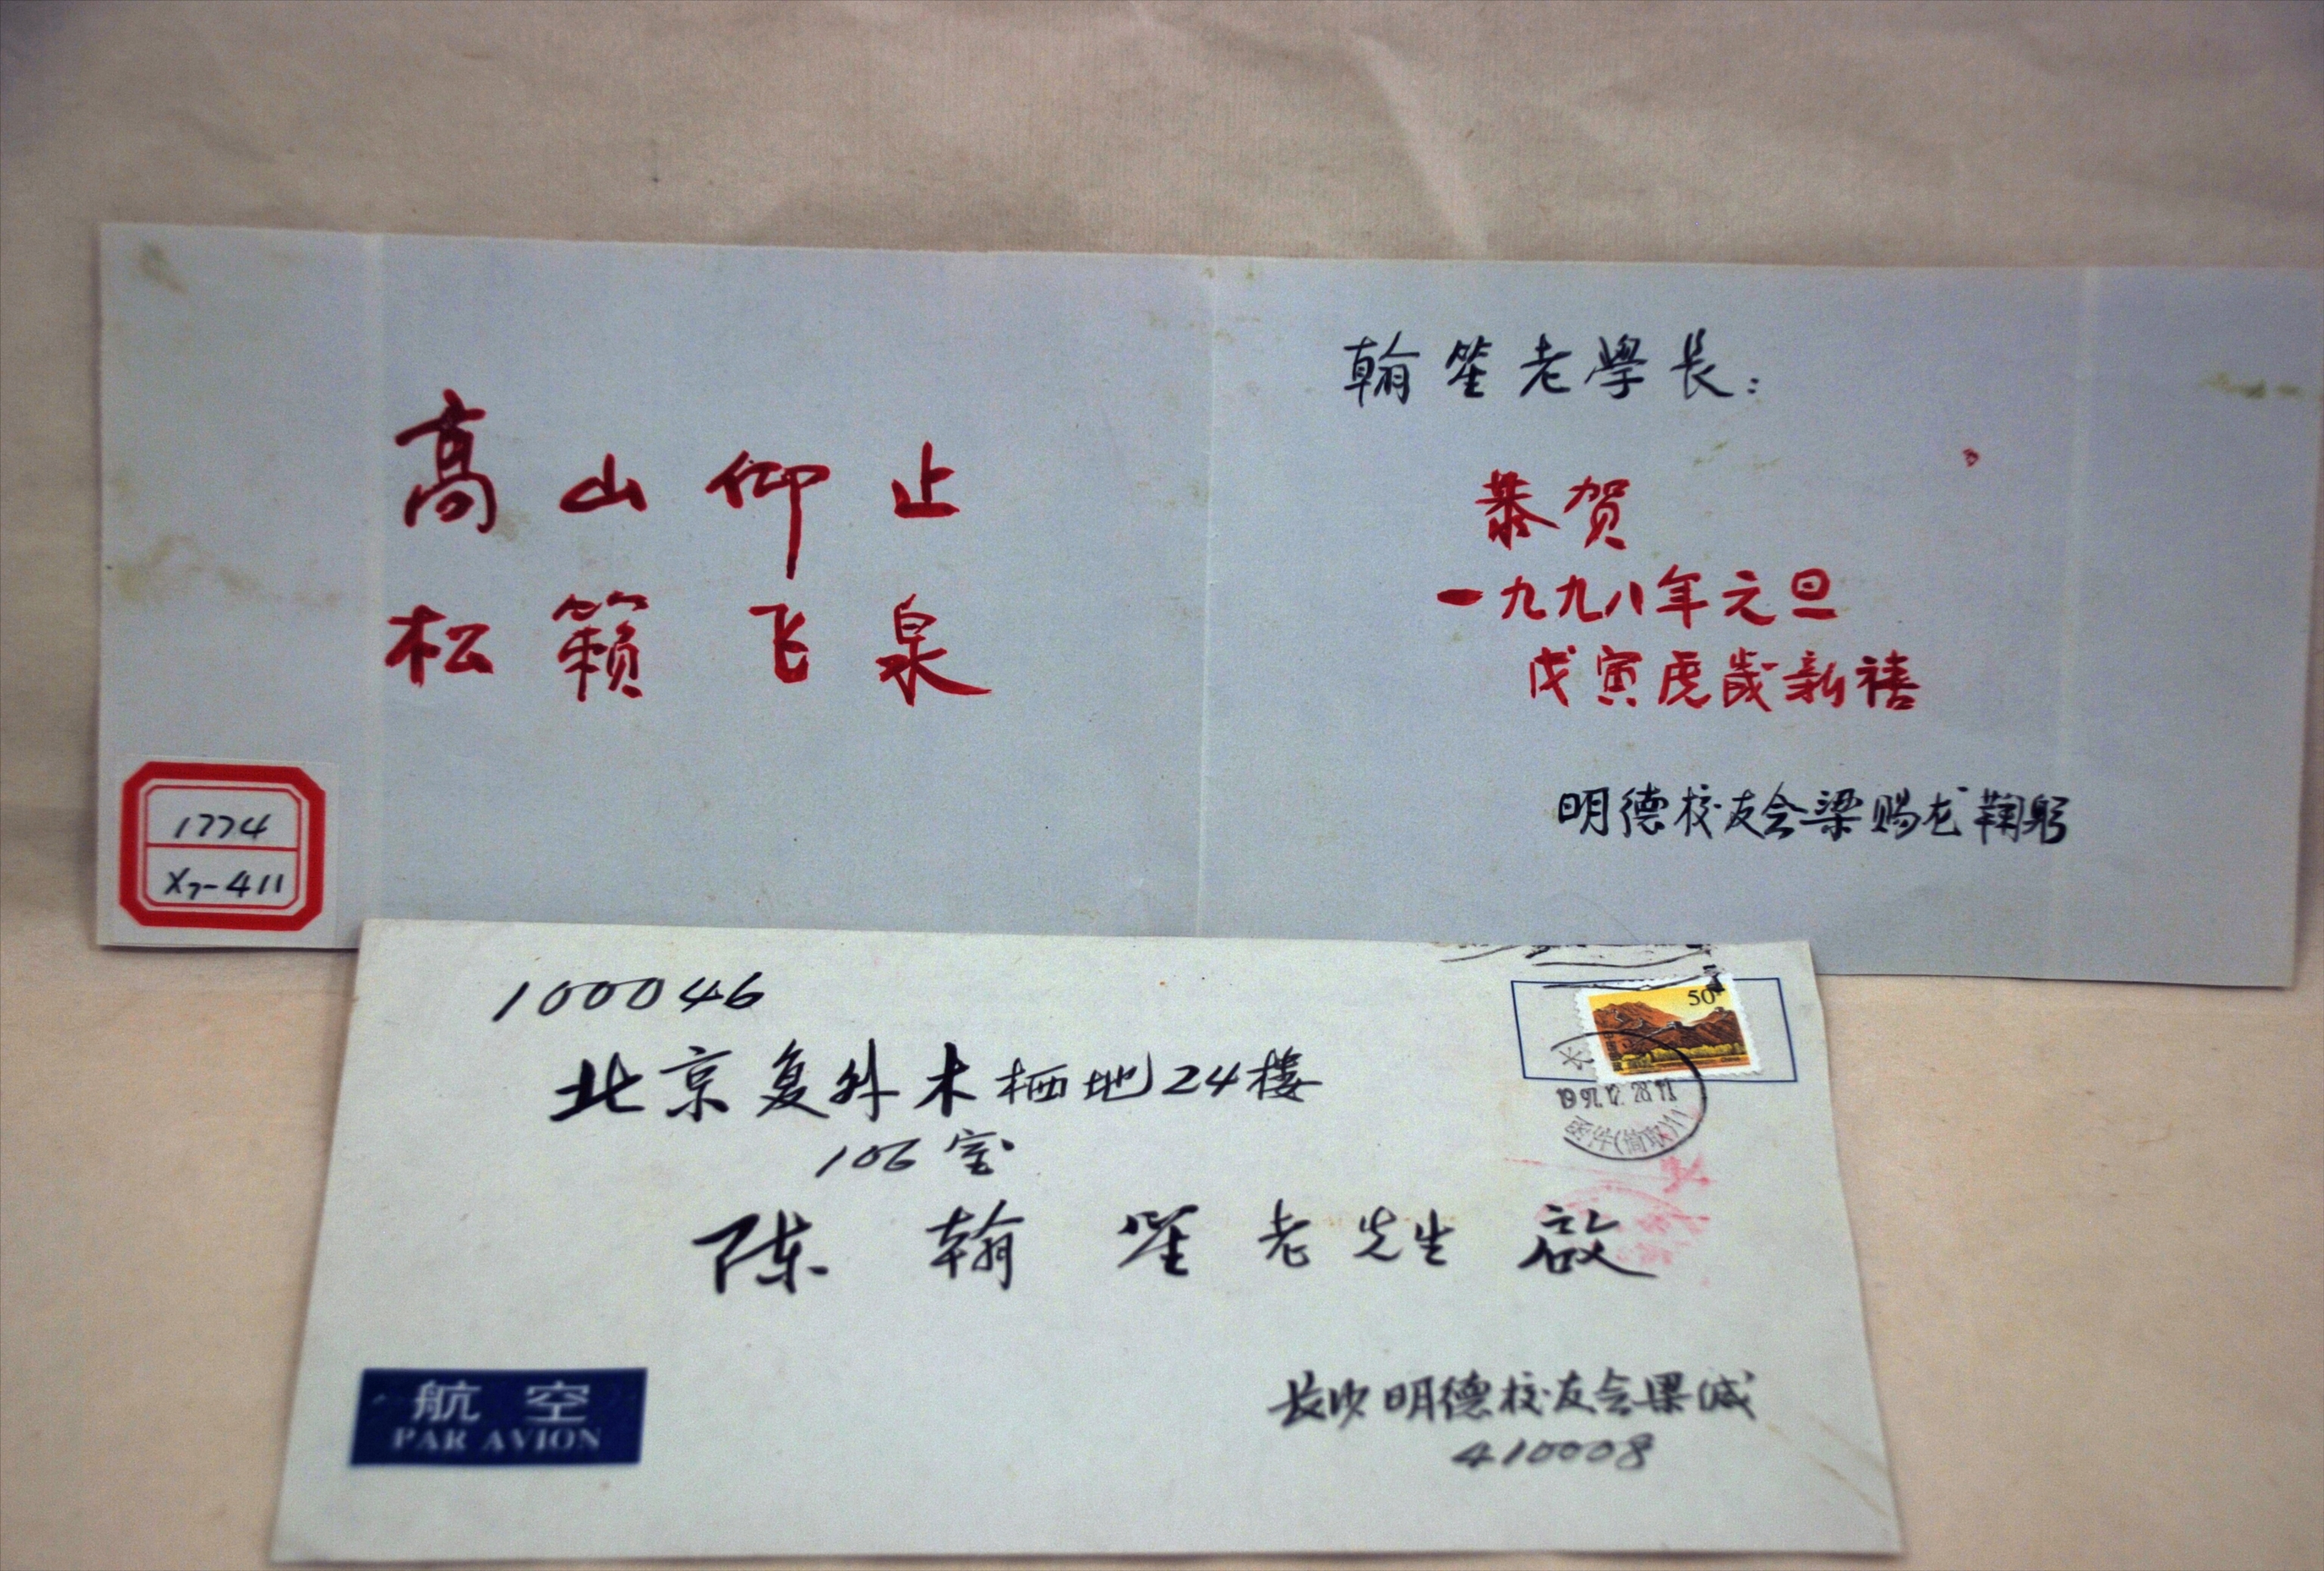 高山仰止
松籁飞泉
翰笙老學长：
恭贺
一九九八年元旦
戊寅虎歲新禧
明德校友会梁赐龙鞠躬
1774
X7-411
100046
北京复外木栖地24楼
106室
陈翰笙老先生 啟
50
1997.12.28
航空
PAR AVION
长沙明德校友会梁缄
410008